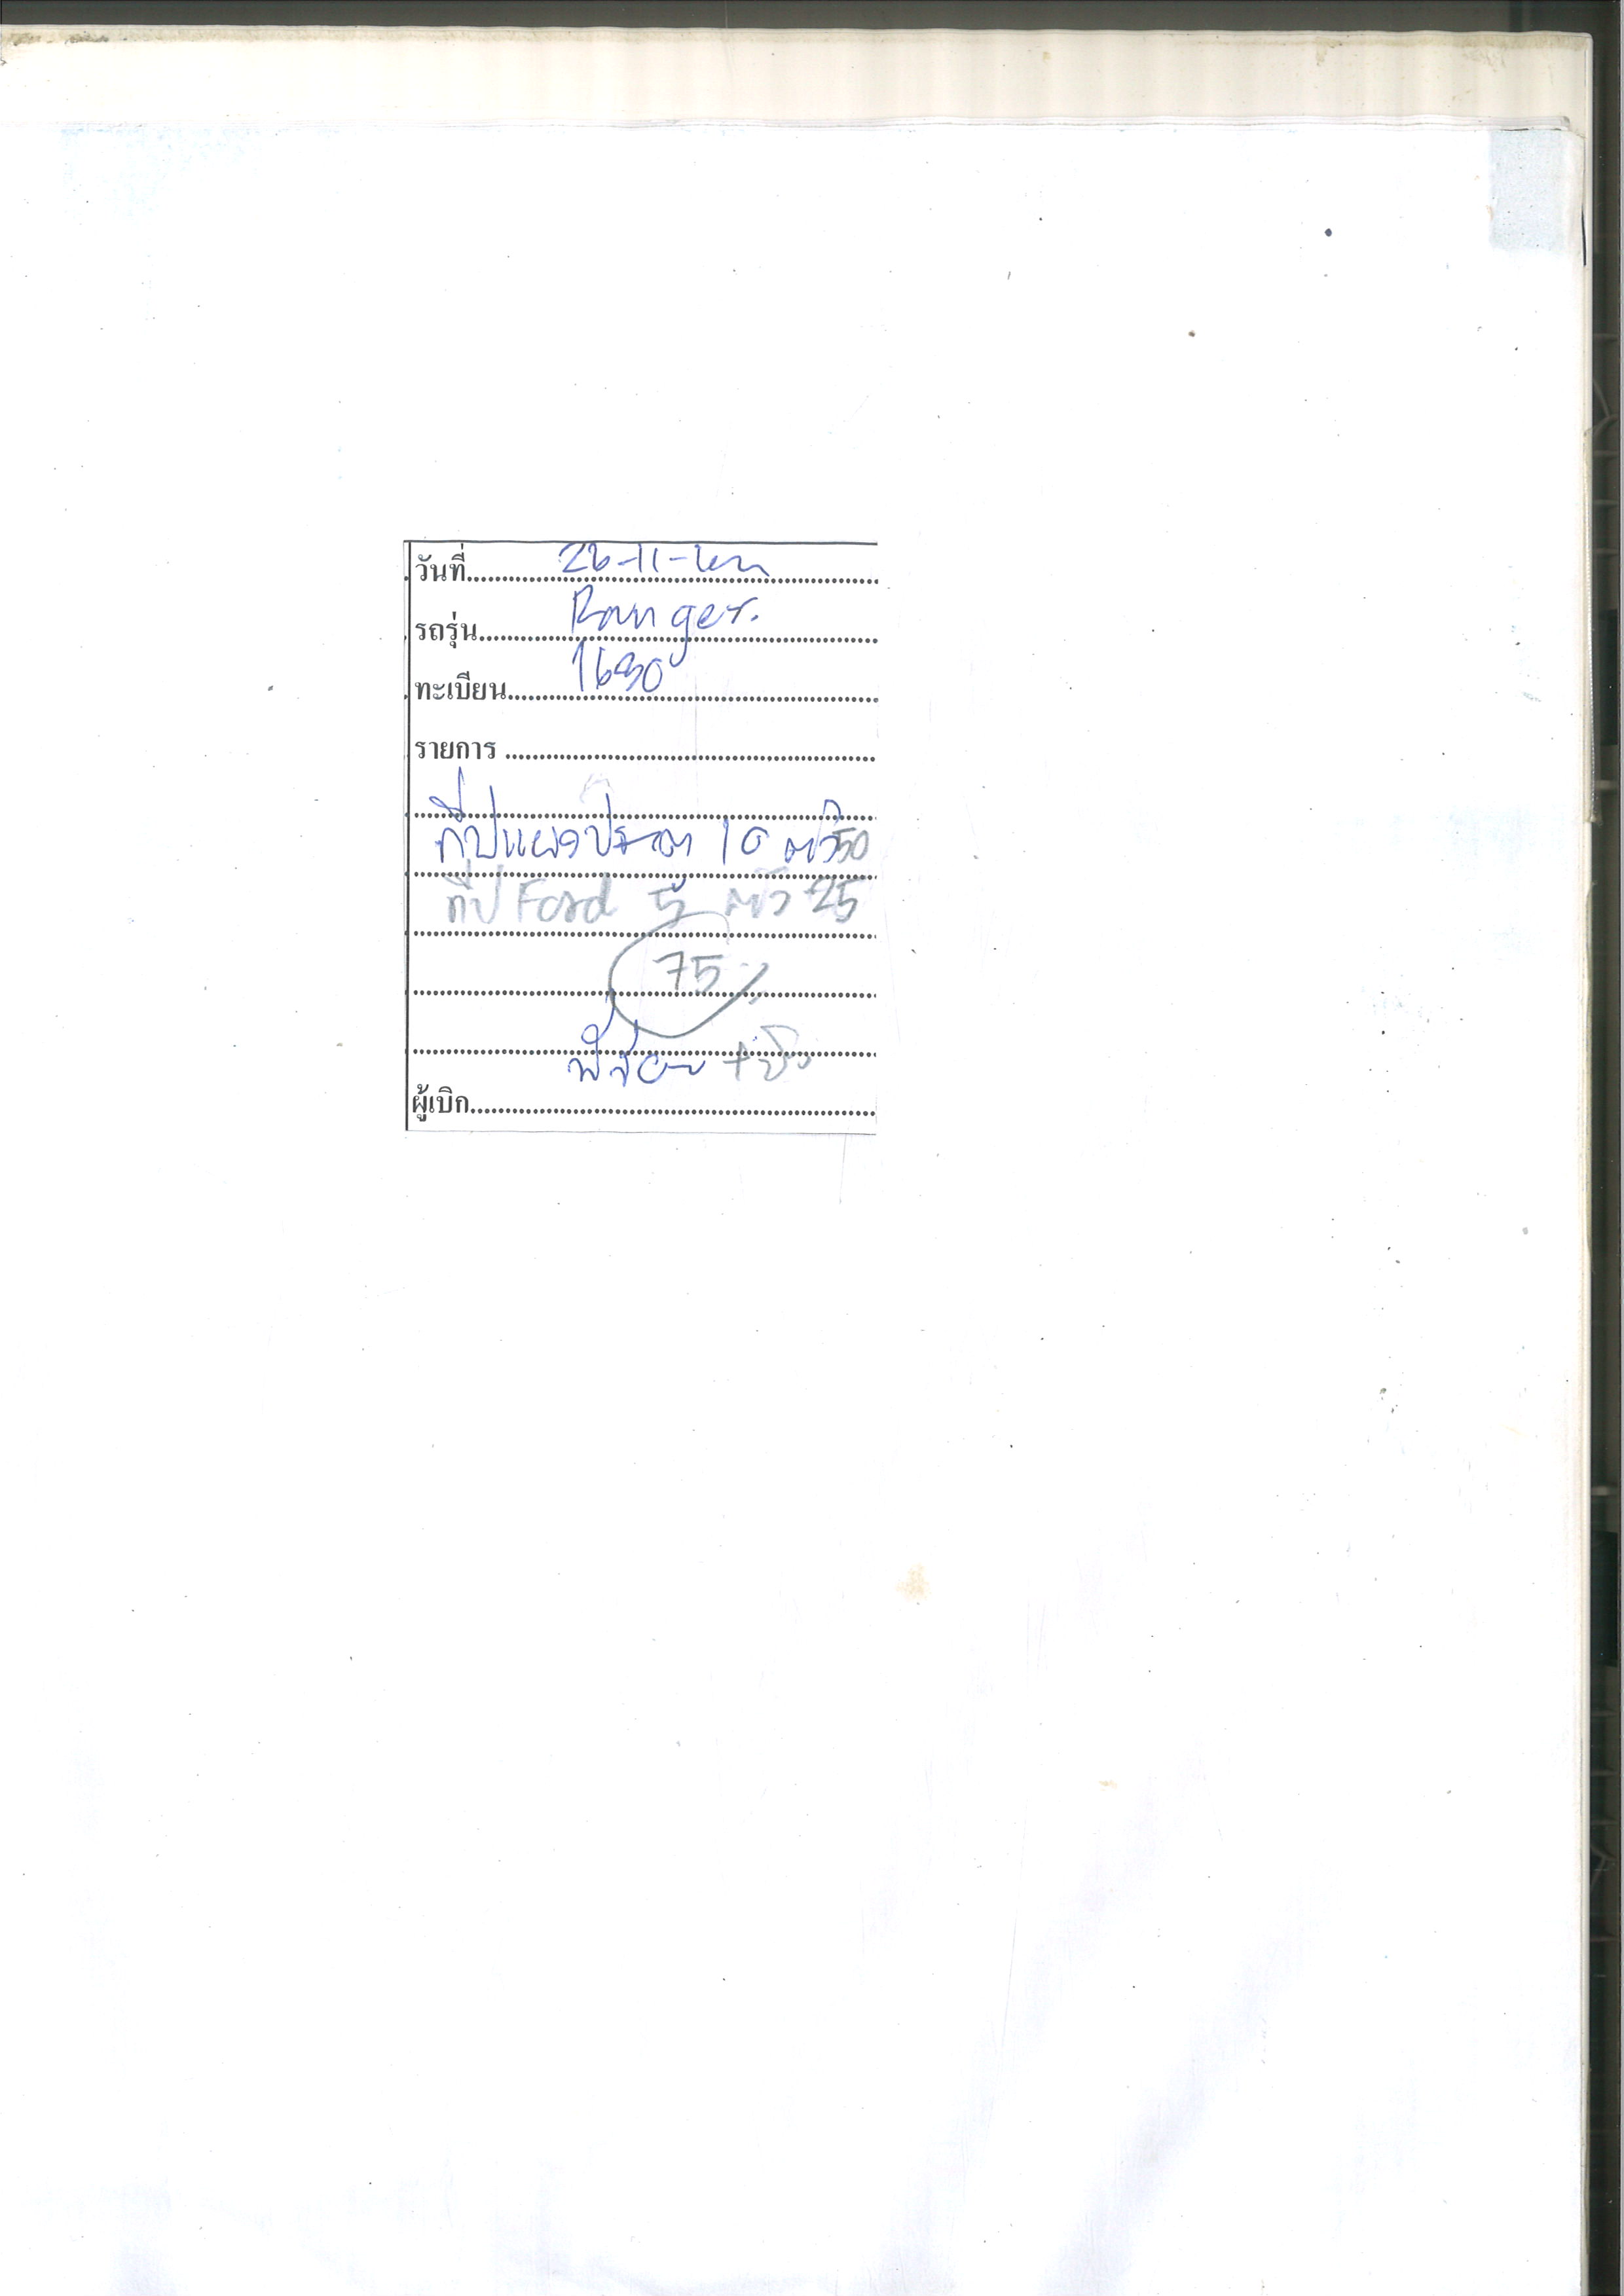 วันที่ 26-11-
รถรุ่น Ranger.
ทะเบียน 1630
รายการ
กิ๊ปแผงประตู 10 ตัว 50
กิ๊ป Ford 5 ตัว 25
75
ผู้เบิก